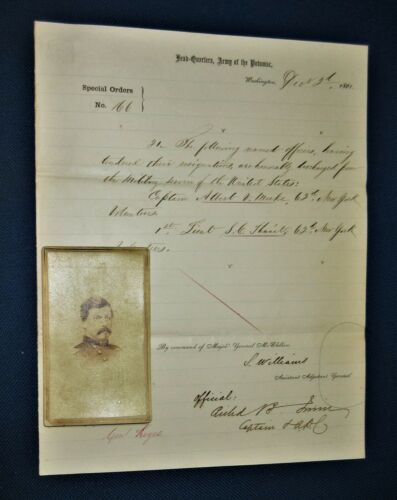 Head-Quarters, Army of the Potomac,
Washington, Nov 2d, 1861.
Special Orders
No. 166
The following named officers, having
tendered their resignations, are honorably discharged from
the Military service of the United States:
Captain Albert V. Meeks, 62d. New York
Volunteers
1st Lieut S. C. 62d. New York
By command of Major General McClellan
S. Williams
Assistant Adjutant General
Official:
Captain & ADC
Genl Keyes